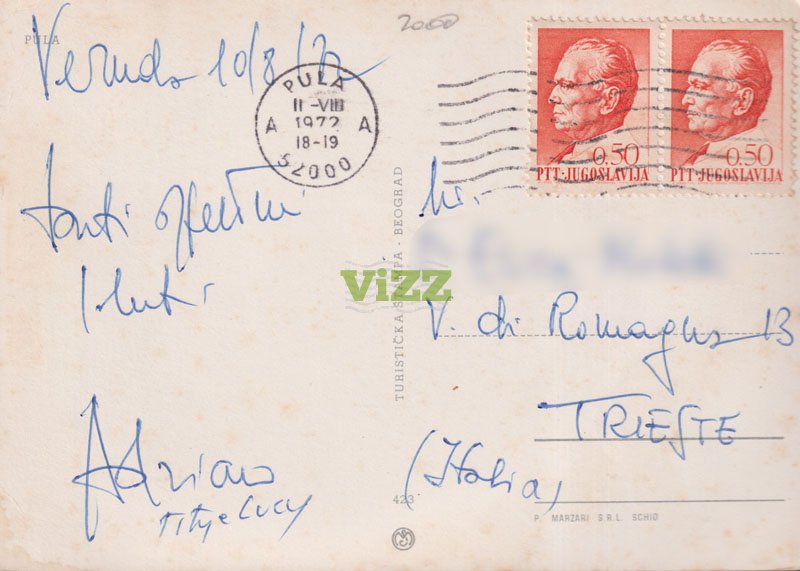 PULA
2000
Veruda 10/8/72
PULA
11-VIII
1972
18-19
A A
52000
0.50
PTT·JUGOSLAVIJA
0.50
PTT·JUGOSLAVIJA
tanti affettuosi
saluti
Adriano
Lucy
TURISTIČKA ŠTAMPA · BEOGRAD
ViZZ
V. di Romagna 13
TRIESTE
(Italia)
423
P. MARZARI S.R.L. SCHIO